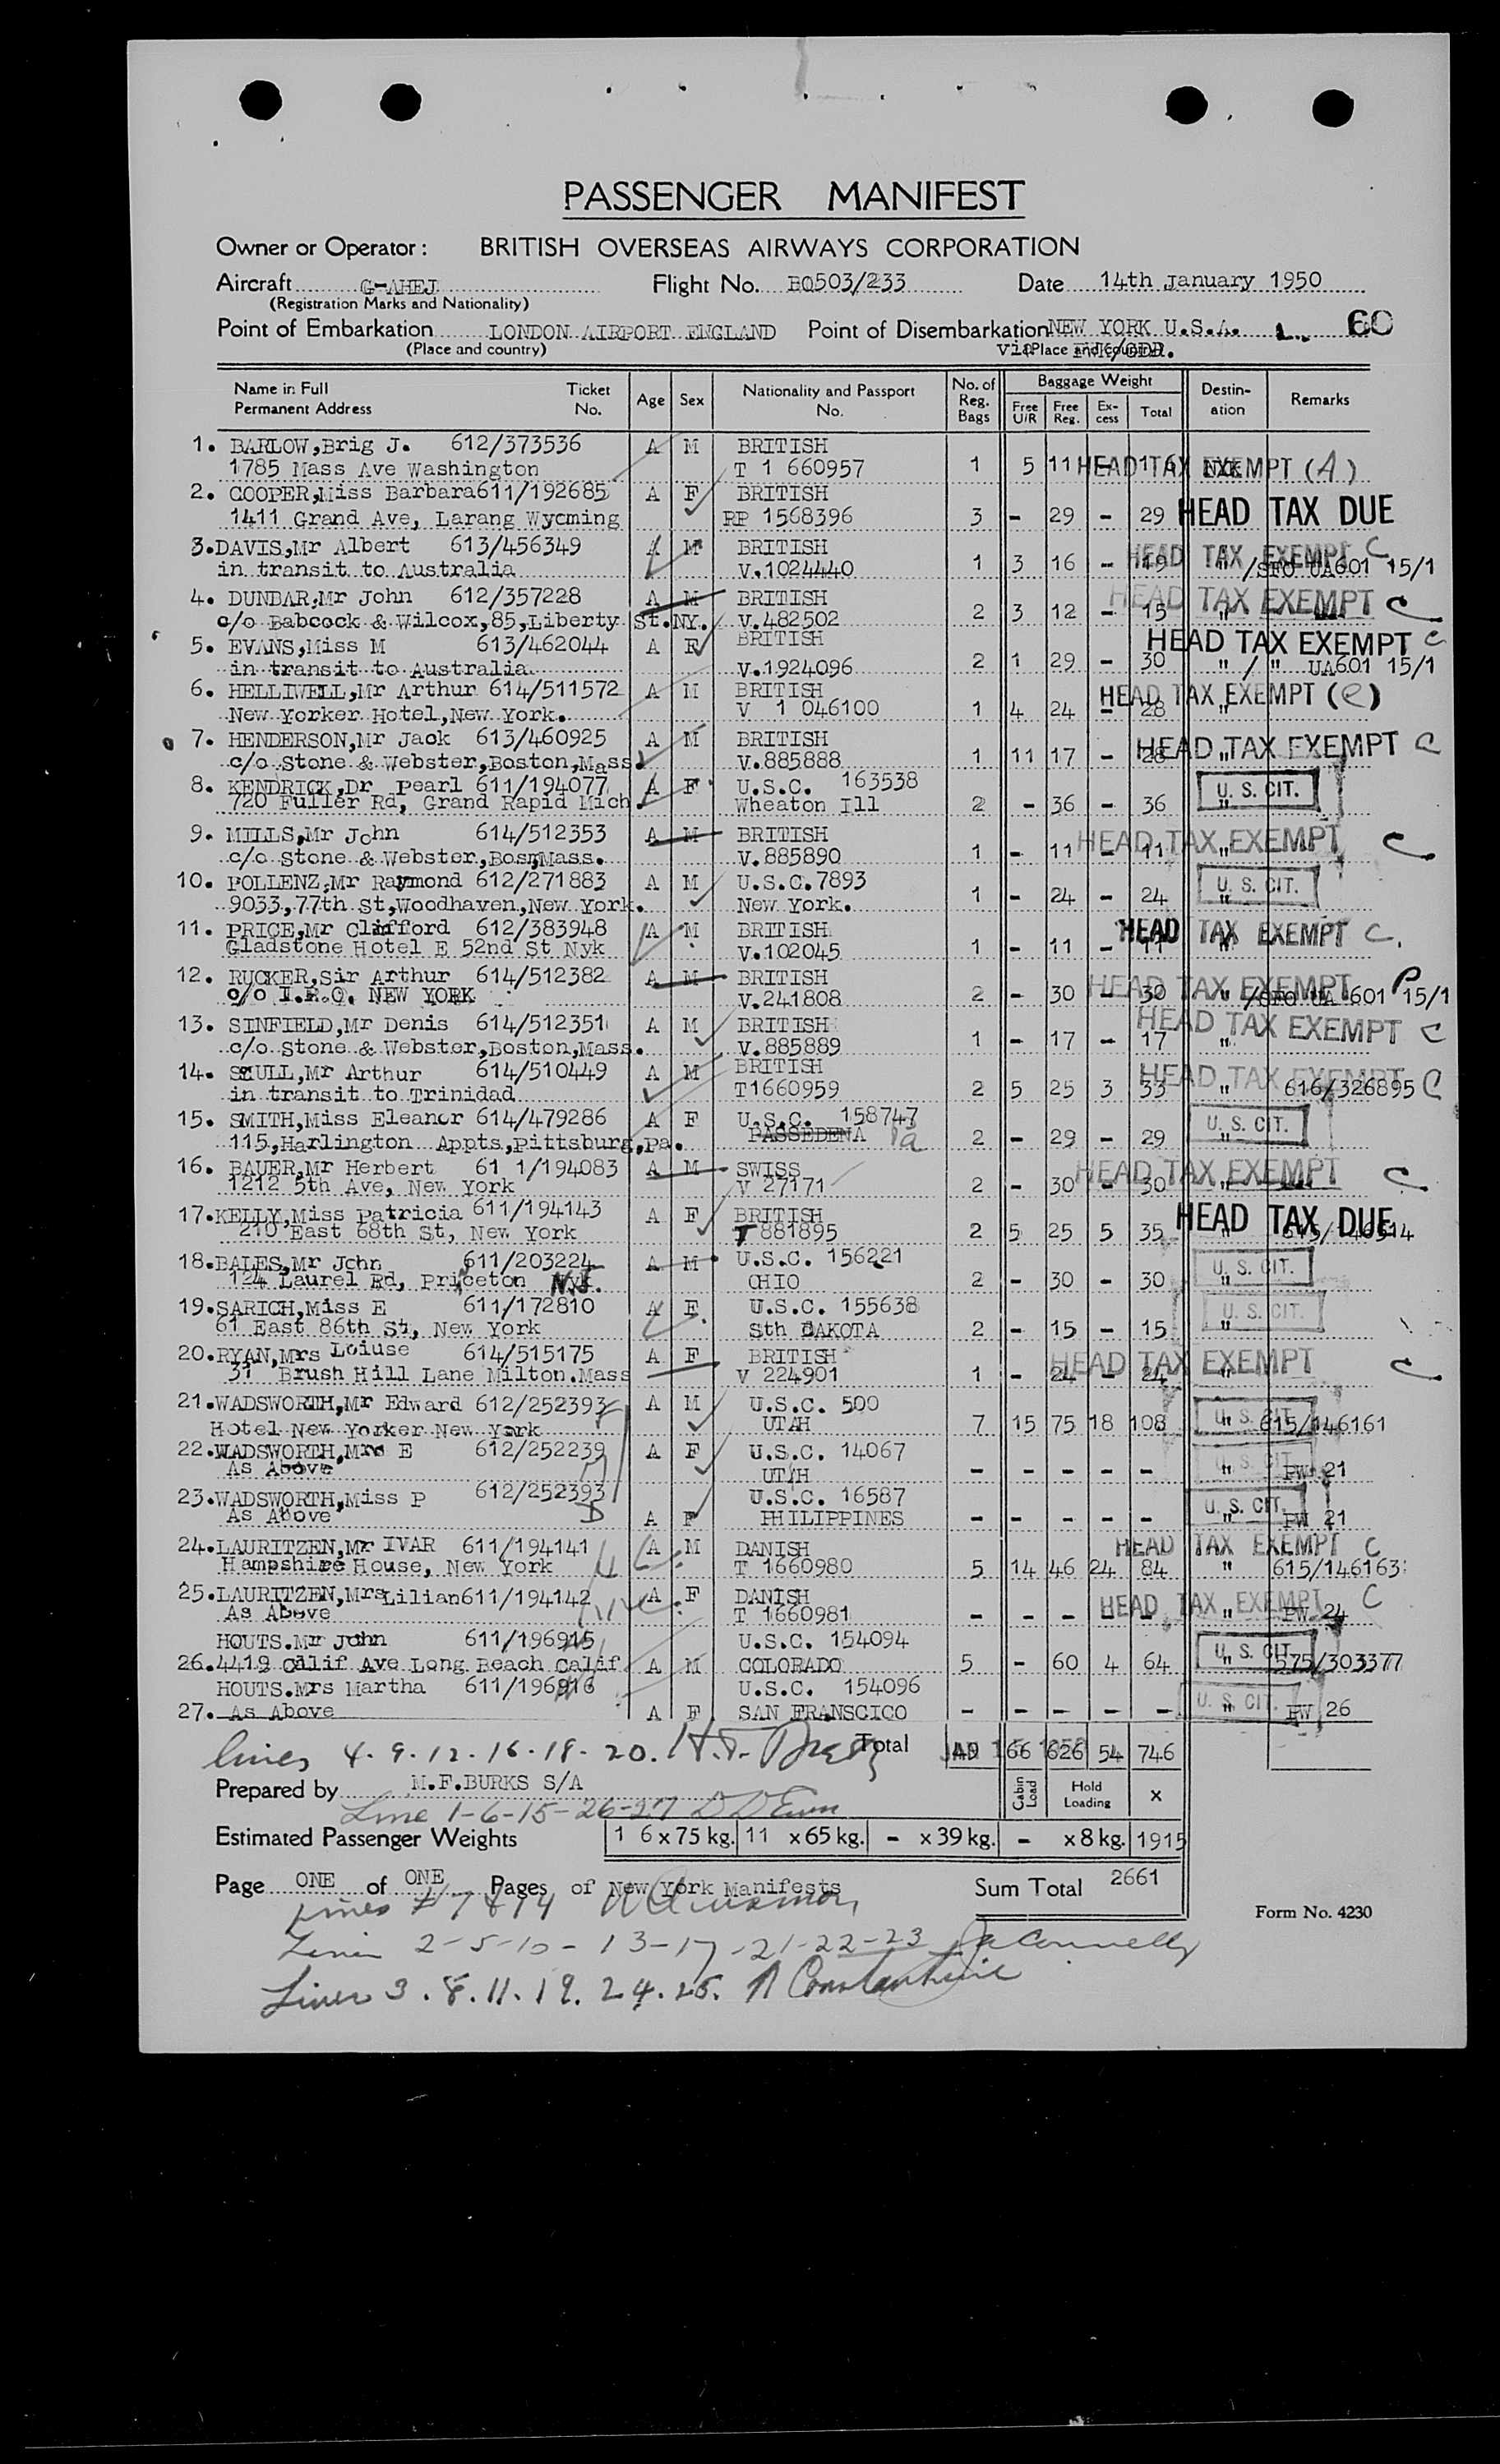 PASSENGER MANIFEST
Owner or Operator : BRITISH OVERSEAS AIRWAYS CORPORATION
Aircraft G-AHEJ Flight No. BO503/233 Date 14th January 1950
(Registration Marks and Nationality)
Point of Embarkation LONDON AIRPORT ENGLAND Point of Disembarkation NEW YORK U.S.A. L. 60
(Place and country) via (Place and country)
Name in Full Ticket Age Sex Nationality and Passport No. of Baggage Weight Destin- Remarks
Permanent Address No. No. Reg. Bags Free U/R Free Reg. Ex- cess Total ation
1. BARLOW,Brig J. 612/373536 A M BRITISH
1785 Mass Ave Washington T 1 660957 1 5 11 - 16 NYK HEAD TAX EXEMPT (A)
2. COOPER,Miss Barbara 611/192685 A F BRITISH
1411 Grand Ave, Larang Wyoming RP 1568396 3 - 29 - 29 HEAD TAX DUE
3. DAVIS,Mr Albert 613/456349 A M BRITISH HEAD TAX EXEMPT C
in transit to Australia V.1024440 1 3 16 - 19 " /SFO UA601 15/1
4. DUNBAR,Mr John 612/357228 A M BRITISH HEAD TAX EXEMPT C
c/o Babcock & Wilcox,85,Liberty St.NY. V.482502 2 3 12 - 15 "
5. EVANS,Miss M 613/462044 A F BRITISH HEAD TAX EXEMPT C
in transit to Australia V.1924096 2 1 29 - 30 " / " UA601 15/1
6. HELLIWELL,Mr Arthur 614/511572 A M BRITISH HEAD TAX EXEMPT (C)
New Yorker Hotel,New York. V 1 046100 1 4 24 - 28 "
7. HENDERSON,Mr Jack 613/460925 A M BRITISH HEAD TAX EXEMPT C
c/o Stone & Webster,Boston,Mass. V.885888 1 11 17 - 28 "
8. KENDRICK,Dr Pearl 611/194077 A F U.S.C. 163538 U. S. CIT.
720 Fuller Rd, Grand Rapid Mich. Wheaton Ill 2 - 36 - 36 "
9. MILLS,Mr John 614/512353 A M BRITISH HEAD TAX EXEMPT C
c/o Stone & Webster,Bosn,Mass. V.885890 1 - 11 - 11 "
10. POLLENZ,Mr Raymond 612/271883 A M U.S.C.7893 U. S. CIT.
9033,77th St,Woodhaven,New York. New York. 1 - 24 - 24 "
11. PRICE,Mr Clifford 612/383948 A M BRITISH HEAD TAX EXEMPT C.
Gladstone Hotel E 52nd St Nyk V.102045 1 - 11 - 11 "
12. RUCKER,Sir Arthur 614/512382 A M BRITISH HEAD TAX EXEMPT P
c/o I.R.O. NEW YORK V.241808 2 - 30 - 30 " /SFO UA 601 15/1
13. SINFIELD,Mr Denis 614/512351 A M BRITISH HEAD TAX EXEMPT C
c/o Stone & Webster,Boston,Mass. V.885889 1 - 17 - 17 "
14. SCULL,Mr Arthur 614/510449 A M BRITISH HEAD TAX EXEMPT C
in transit to Trinidad T1660959 2 5 25 3 33 " 616/326895
15. SMITH,Miss Eleanor 614/479286 A F U.S.C. 158747 U. S. CIT.
115,Harlington Appts,Pittsburg,Pa. PASSEDENA Pa 2 - 29 - 29 "
16. BAUER,Mr Herbert 61 1/194083 A M SWISS HEAD TAX EXEMPT C
1212 5th Ave, New York V 27171 2 - 30 - 30 "
17. KELLY,Miss Patricia 611/194143 A F BRITISH HEAD TAX DUE
210 East 68th St, New York T 881895 2 5 25 5 35 "
18. BALES,Mr John 611/203224 A M U.S.C. 156221 U. S. CIT.
124 Laurel Rd, Princeton N.J. OHIO 2 - 30 - 30 "
19. SARICH,Miss E 611/172810 A F U.S.C. 155638 U. S. CIT.
61 East 86th St, New York Sth DAKOTA 2 - 15 - 15 "
20. RYAN,Mrs Loiuse 614/515175 A F BRITISH HEAD TAX EXEMPT C
31 Brush Hill Lane Milton.Mass V 224901 1 - 24 - 24 "
21. WADSWORTH,Mr Edward 612/252393 A M U.S.C. 500 U. S. CIT
Hotel New Yorker New York UTAH 7 15 75 18 108 " 615/146161
22. WADSWORTH,Mrs E 612/252239 A F U.S.C. 14067 U. S. CIT
As Above UTAH - - - - - " PW 21
23. WADSWORTH,Miss P 612/252393 U.S.C. 16587 U. S. CIT.
As Above D A F PHILIPPINES - - - - - " PW 21
24. LAURITZEN,Mr IVAR 611/194141 A M DANISH HEAD TAX EXEMPT C
Hampshire House, New York T 1660980 5 14 46 24 84 " 615/146163
25. LAURITZEN,Mrs Lilian 611/194142 A F DANISH HEAD TAX EXEMPT C
As Above T 1660981 - - - - - " PW 24
HOUTS.Mr John 611/196915 U.S.C. 154094 U. S. CIT
26. 4419 Calif Ave Long Beach Calif A M COLORADO 5 - 60 4 64 " 575/303377
HOUTS.Mrs Martha 611/196916 U.S.C. 154096 U. S. CIT.
27. As Above A F SAN FRANSCICO - - - - - " PW 26
lines 4. 9. 12. 16. 18. 20. Total 49 66 626 54 746
Prepared by M.F.BURKS S/A Cabin Load Hold Loading X
Line 1-6-15-26-27
Estimated Passenger Weights 1 6 x 75 kg. 11 x 65 kg. - x 39 kg. - x 8 kg. 1915
Page ONE of ONE Pages of New York Manifests Sum Total 2661
Lines # 7 & 14
Form No. 4230
Lines 2-5-10-13-17-21-22-23 Connelly
Lines 3. 8. 11. 19. 24. 25. Constantine